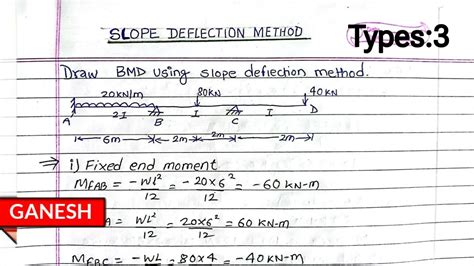 SLOPE DEFLECTION METHOD
Types:3
Draw BMD using slope deflection method.
20KN/m 80KN 40KN
A 2I B I C I D
6m 2m 2m 2m
⇒ i) Fixed end moment
MFAB = -Wl²/12 = -20×6²/12 = -60 KN-m
GANESH
A = Wl²/12 = 20×6²/12 = 60 KN-m
MFBC = -WL = 80×4 = -40 KN-m